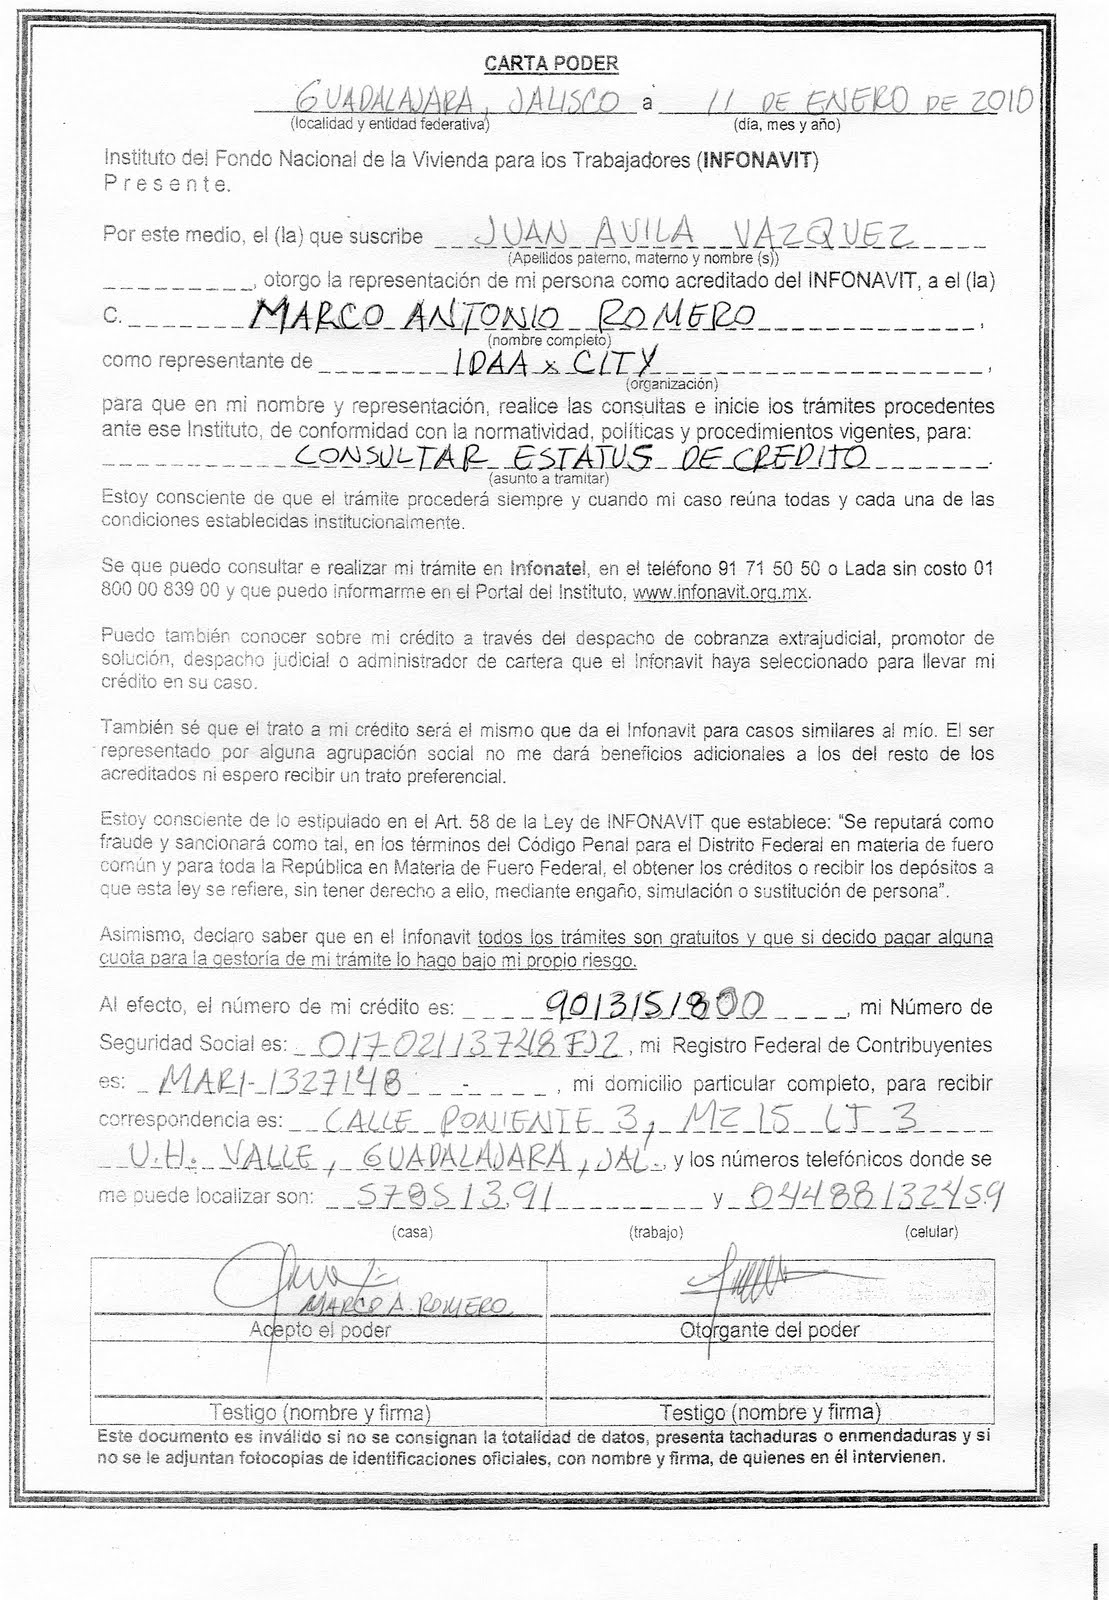 CARTA PODER
GUADALAJARA, JALISCO a 11 DE ENERO DE 2010
(localidad y entidad federativa) (día, mes y año)
Instituto del Fondo Nacional de la Vivienda para los Trabajadores (INFONAVIT)
P r e s e n t e.
Por este medio, el (la) que suscribe JUAN AVILA VAZQUEZ
(Apellidos paterno, materno y nombre (s))
, otorgo la representación de mi persona como acreditado del INFONAVIT, a el (la)
C. MARCO ANTONIO ROMERO ,
(nombre completo)
como representante de IDAA x CITY ,
(organización)
para que en mi nombre y representación, realice las consultas e inicie los trámites procedentes
ante ese Instituto, de conformidad con la normatividad, políticas y procedimientos vigentes, para:
CONSULTAR ESTATUS DE CREDITO .
(asunto a tramitar)
Estoy consciente de que el trámite procederá siempre y cuando mi caso reúna todas y cada una de las
condiciones establecidas institucionalmente.
Se que puedo consultar e realizar mi trámite en Infonatel, en el teléfono 91 71 50 50 o Lada sin costo 01
800 00 839 00 y que puedo informarme en el Portal del Instituto, www.infonavit.org.mx.
Puedo también conocer sobre mi crédito a través del despacho de cobranza extrajudicial, promotor de
solución, despacho judicial o administrador de cartera que el Infonavit haya seleccionado para llevar mi
crédito en su caso.
También sé que el trato a mi crédito será el mismo que da el Infonavit para casos similares al mío. El ser
representado por alguna agrupación social no me dará beneficios adicionales a los del resto de los
acreditados ni espero recibir un trato preferencial.
Estoy consciente de lo estipulado en el Art. 58 de la Ley de INFONAVIT que establece: “Se reputará como
fraude y sancionará como tal, en los términos del Código Penal para el Distrito Federal en materia de fuero
común y para toda la República en Materia de Fuero Federal, el obtener los créditos o recibir los depósitos a
que esta ley se refiere, sin tener derecho a ello, mediante engaño, simulación o sustitución de persona”.
Asimismo, declaro saber que en el Infonavit todos los trámites son gratuitos y que si decido pagar alguna
cuota para la gestoría de mi trámite lo hago bajo mi propio riesgo.
Al efecto, el número de mi crédito es: 9013151800 , mi Número de
Seguridad Social es: , mi Registro Federal de Contribuyentes
es: MAR1-1327148 - , mi domicilio particular completo, para recibir
correspondencia es: CALLE PONIENTE 3, MZ 15 LT 3
U.H. VALLE, GUADALAJARA, JAL. y los números telefónicos donde se
me puede localizar son: 57851391 y 0448813 2459
(casa) (trabajo) (celular)
MARCO A. ROMERO
Acepto el poder Otorgante del poder
Testigo (nombre y firma) Testigo (nombre y firma)
Este documento es inválido si no se consignan la totalidad de datos, presenta tachaduras o enmendaduras y si
no se le adjuntan fotocopias de identificaciones oficiales, con nombre y firma, de quienes en él intervienen.